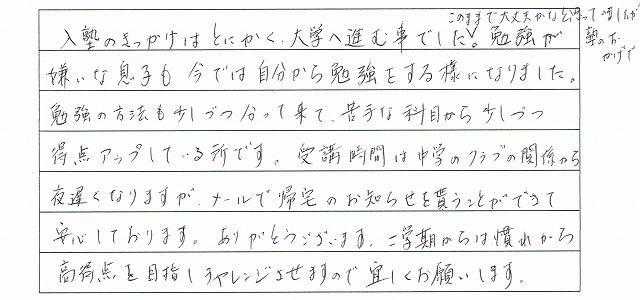 このままで大丈夫かなと思っていましたが
塾のお
かげで
入塾のきっかけはとにかく、大学へ進む事でした。勉強が
嫌いな息子も今では自分から勉強をする様になりました。
勉強の方法も少しづつ分って来て、苦手な科目から少しづつ
得点アップしている所です。受講時間は中学のクラブの関係から
夜遅くなりますが、メールで帰宅のお知らせを貰うことができて
安心しております。ありがとうございます。二学期からは慣れから
高得点を目指しチャレンジさせますので宜しくお願いします。